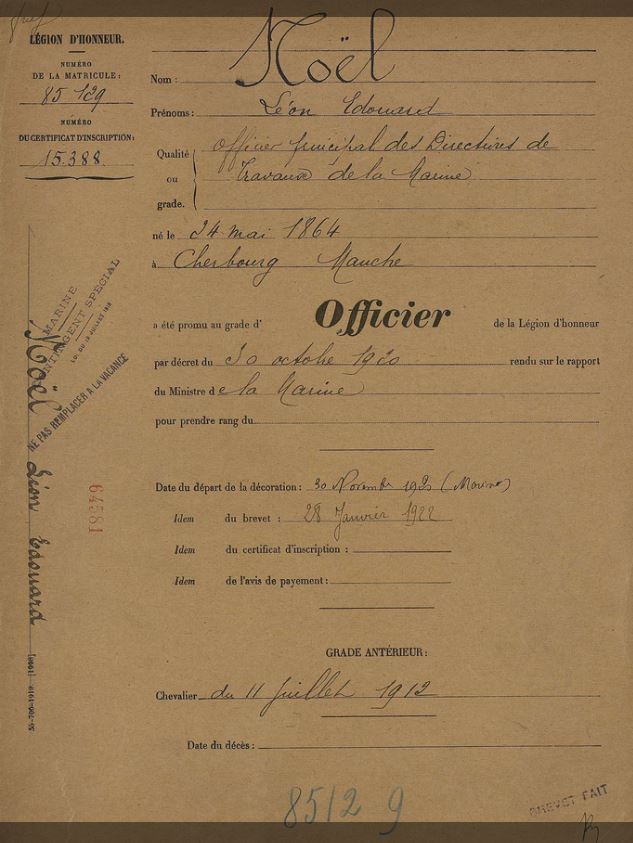 LÉGION D'HONNEUR.
NUMÉRO
DE LA MATRICULE :
85 129
NUMÉRO
DU CERTIFICAT D'INSCRIPTION :
15.388
Nom : Noël
Prénoms : Léon Edouard
Qualité ou grade. Officier principal des Directions de
Travaux de la Marine
né le 24 mai 1864
à Cherbourg Manche
a été promu au grade d' Officier de la Légion d'honneur
par décret du 30 octobre 1920 rendu sur le rapport
du Ministre de la Marine
pour prendre rang du
Date du départ de la décoration : 30 Novembre 1920 (Marine)
Idem du brevet : 28 Janvier 1922
Idem du certificat d'inscription :
Idem de l'avis de payement :
GRADE ANTÉRIEUR :
Chevalier du 11 Juillet 1912
Date du décès :
MARINE
CONTINGENT SPECIAL
NE PAS REMPLACER A LA VACANCE
Noël Léon Edouard
64581
8512 9
BREVET FAIT